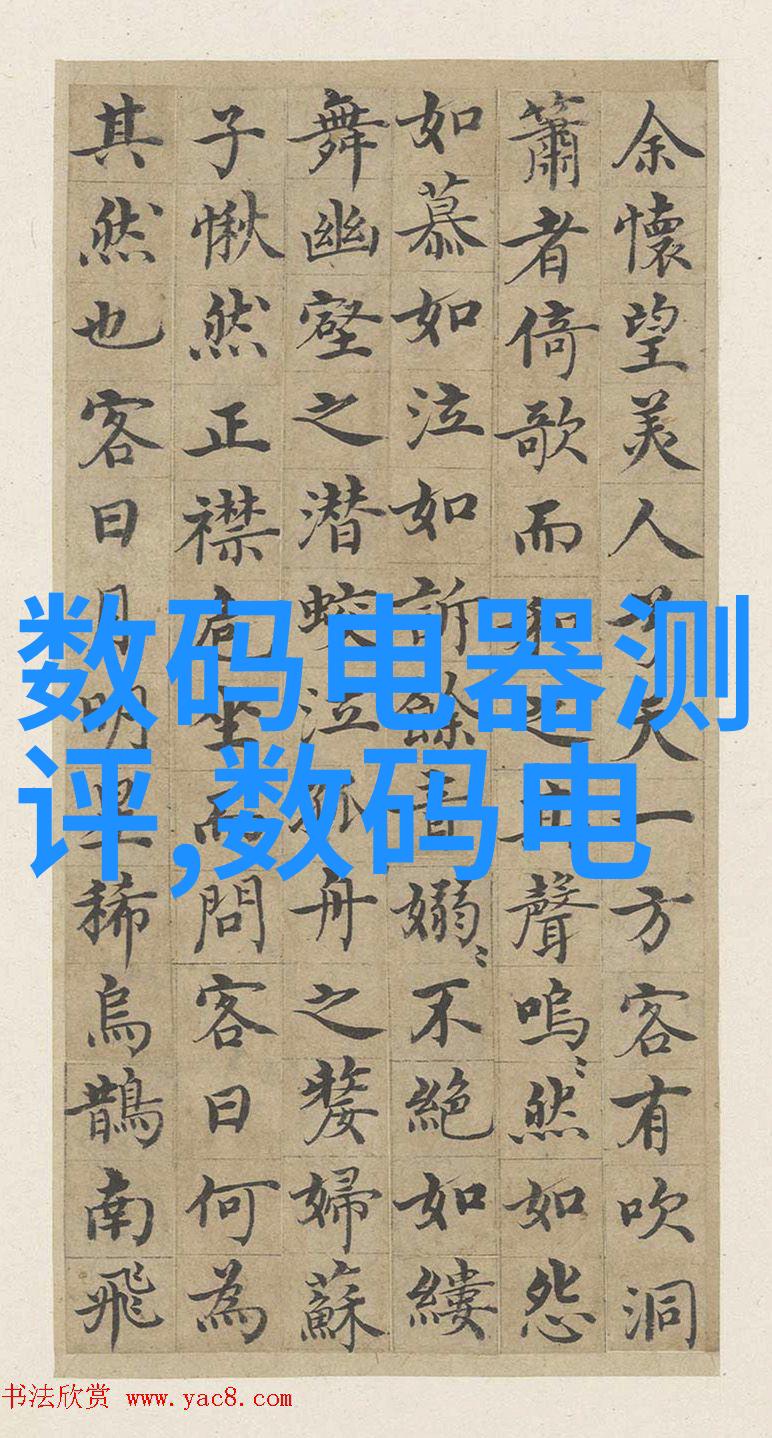 余懷望美人兮天一方客有吹洞
簫者倚歌而和之其聲嗚〻然如怨
如慕如泣如訴餘音嫋〻不絕如縷
舞幽壑之潜蛟泣孤舟之嫠婦蘇
子愀然正襟危坐而問客曰何為
其然也客曰月明星稀烏鵲南飛
数码电器测
评,数码电
书法欣赏 www.yac8.com